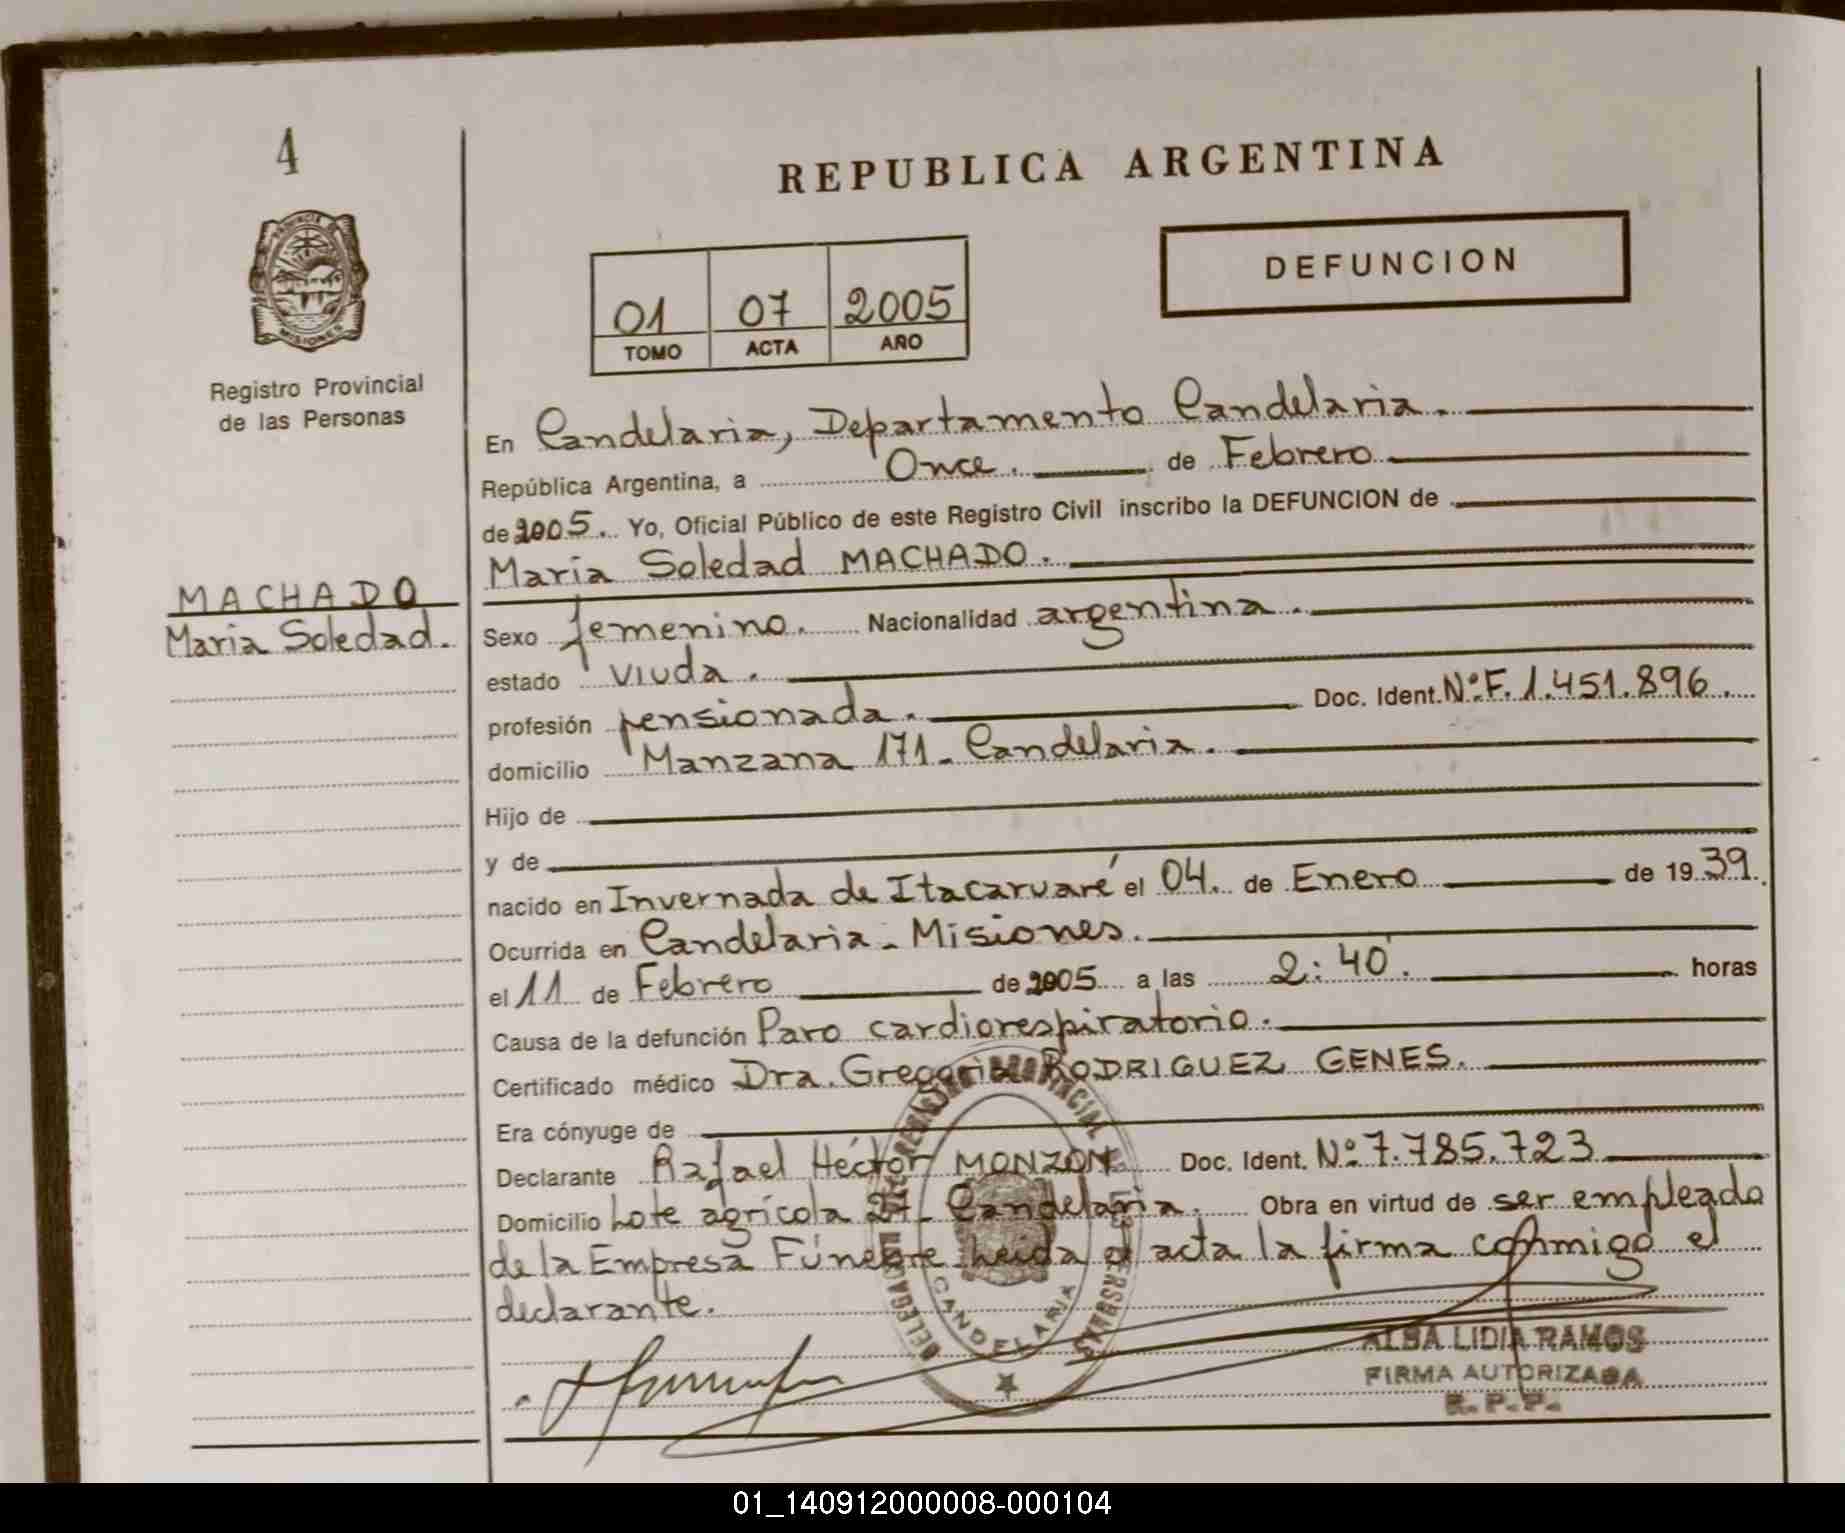 4
REPUBLICA ARGENTINA
DEFUNCION
01 07 2005
TOMO ACTA AÑO
PROVINCIA
MISIONES
Registro Provincial
de las Personas
En Candelaria, Departamento Candelaria.
República Argentina, a Once. de Febrero
de 2005. Yo, Oficial Público de este Registro Civil inscribo la DEFUNCION de
Maria Soledad MACHADO.
MACHADO
Maria Soledad.
Sexo femenino. Nacionalidad argentina.
estado viuda.
profesión pensionada. Doc. Ident. Nº F. 1.451.896.
domicilio Manzana 171 - Candelaria.
Hijo de
y de
nacido en Invernada de Itacaruaré el 04. de Enero de 1939.
Ocurrida en Candelaria - Misiones.
el 11 de Febrero de 2005 a las 2:40. horas
Causa de la defunción Paro cardiorespiratorio.
Certificado médico Dra. Gregoria RODRIGUEZ GENES.
Era cónyuge de
Declarante Rafael Héctor MONZON. Doc. Ident. Nº 7.785.723
Domicilio Lote agrícola 27 - Candelaria. Obra en virtud de ser empleado
de la Empresa Fúnebre leida el acta la firma conmigo el
declarante.
CANDELARIA
ALBA LIDIA RAMOS
FIRMA AUTORIZADA
R. P. P.
01_140912000008-000104